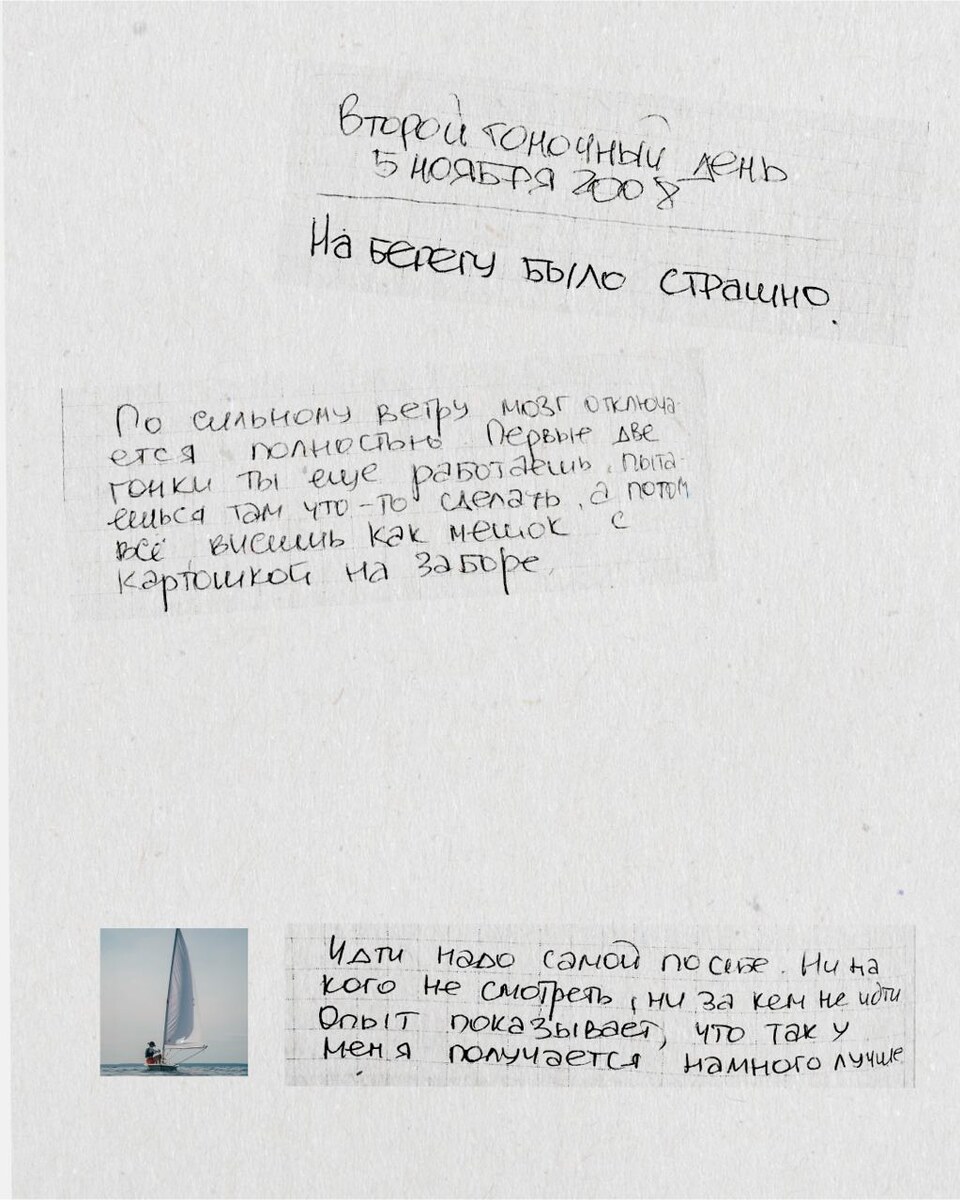 Второй гоночный день
5 ноября 2008
На берегу было страшно.
По сильному ветру мозг отключа-
ется полностью. Первые две
гонки ты еще работаешь, пыта-
ешься там что-то сделать, а потом
всё висишь как мешок с
картошкой на заборе.
Идти надо самой по себе. Ни на
кого не смотреть, ни за кем не идти
Опыт показывает, что так у
меня получается намного лучше